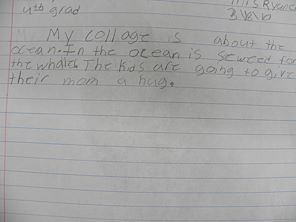 4th grad
My collage is about the
ocean. In the ocean is seweed for
the whales The kids are going to give
their mom a hug.